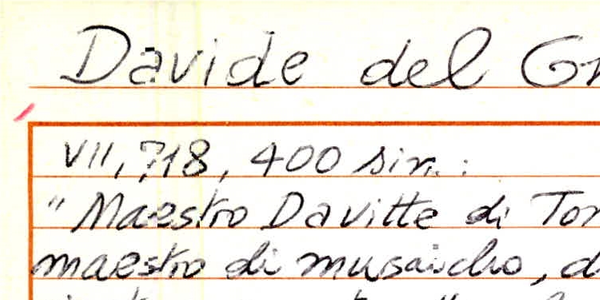 Davide del G
VII, 718, 400 sin. :
"Maestro Davitte di Tom
maestro di musaicho, d